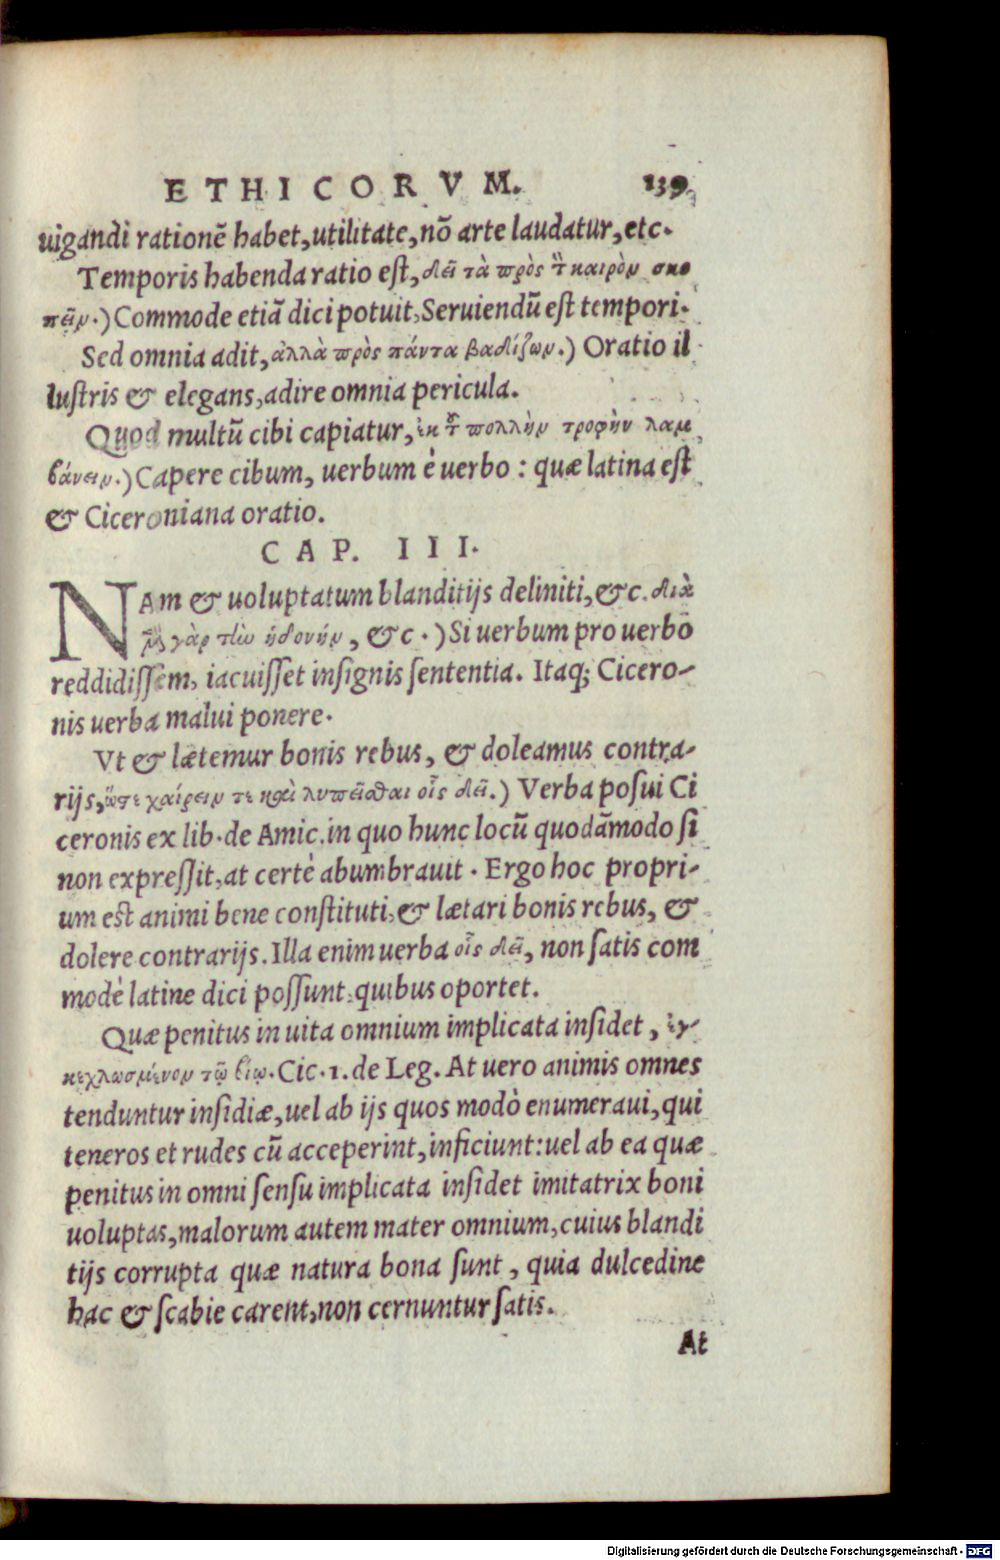 ETHICORVM. 139
uigandi rationē habet, utilitate, nō arte laudatur, etc.
Temporis habenda ratio eſt, δεῖ τὰ πρὸς τ̀ καιρὸν σκο
πεῖν.) Commode etiā dici potuit, Seruiendū eſt tempori.
Sed omnia adit, ἀλλὰ πρὸς πάντα βαδίζων.) Oratio il
luſtris & elegans, adire omnia pericula.
Quod multū cibi capiatur, ἐκ τ̃ πολλὴν τροφὴν λαμ
βάνειν.) Capere cibum, uerbum è uerbo: quæ latina eſt
& Ciceroniana oratio.
CAP. III.
NAm & uoluptatum blanditijs deliniti, &c. διὰ
μ̃ γὰρ τὴν ἡδονὴν, &c.) Si uerbum pro uerbo
reddidiſſem, iacuiſſet inſignis ſententia. Itaq; Cicero-
nis uerba malui ponere.
Vt & lætemur bonis rebus, & doleamus contra-
rijs, ὥστε χαίρειν τε καὶ λυπεῖσθαι οἷς δεῖ.) Verba poſui Ci
ceronis ex lib. de Amic. in quo hunc locū quodāmodo ſi
non expreſſit, at certè abumbrauit. Ergo hoc propri-
um eſt animi bene conſtituti, & lætari bonis rebus, &
dolere contrarijs. Illa enim uerba οἷς δεῖ, non ſatis com
modè latine dici poſſunt, quibus oportet.
Quæ penitus in uita omnium implicata inſidet, ἐγ-
κεχλωσμένον τῷ βίῳ. Cic. 1. de Leg. At uero animis omnes
tenduntur inſidiæ, uel ab ijs quos modò enumeraui, qui
teneros et rudes cū acceperint, inficiunt: uel ab ea quæ
penitus in omni ſenſu implicata inſidet imitatrix boni
uoluptas, malorum autem mater omnium, cuius blandi
tijs corrupta quæ natura bona ſunt, quia dulcedine
hac & ſcabie carent, non cernuntur ſatis.
At
Digitalisierung gefördert durch die Deutsche Forschungsgemeinschaft - DFG